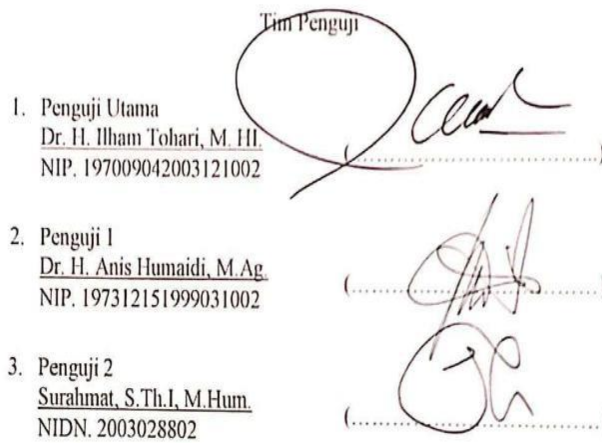 Tim Penguji
1. Penguji Utama
Dr. H. Ilham Tohari, M. HI.
NIP. 197009042003121002
(..............................)
2. Penguji 1
Dr. H. Anis Humaidi, M.Ag.
NIP. 197312151999031002
(..............................)
3. Penguji 2
Surahmat, S.Th.I, M.Hum.
NIDN. 2003028802
(..............................)